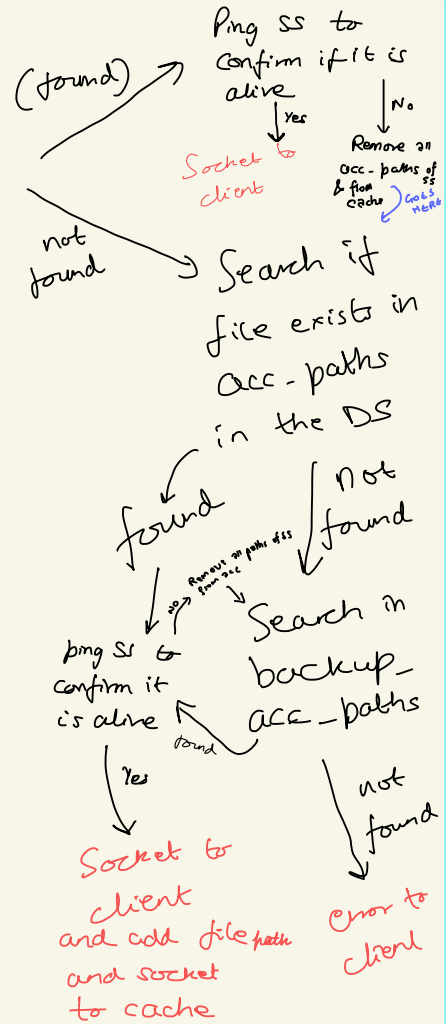 (found)
Ping SS to
confirm if it is
alive
Yes
No
Socket to
client
Remove all
acc_paths of
SS
& from
cache
GOES
HERE
not
found
Search if
file exists in
acc_paths
in the DS
found
not
found
NO
Remove all paths of SS
from acc
Search in
backup_
acc_paths
ping SS to
confirm it
is alive
found
Yes
not
found
Socket to
client
and add file path
and socket
to cache
error to
client